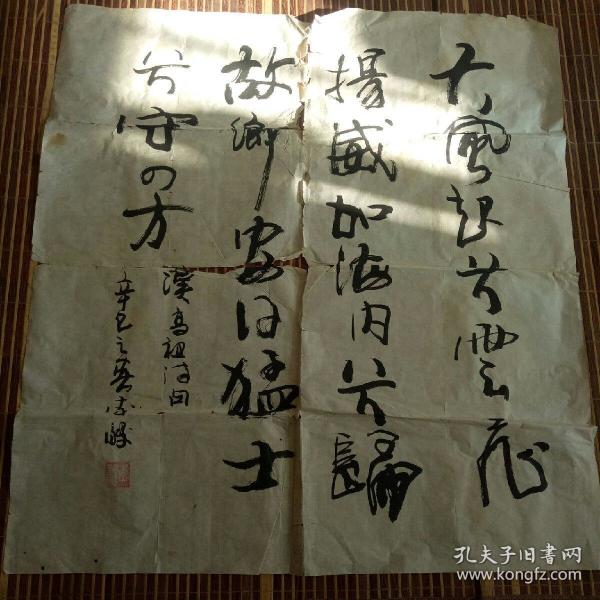 大風起兮雲飛
揚威加海內兮歸
故鄉安得猛士
兮守四方
漢高祖詩曰
辛巳之
孔夫子旧書网
www.kongfz.com